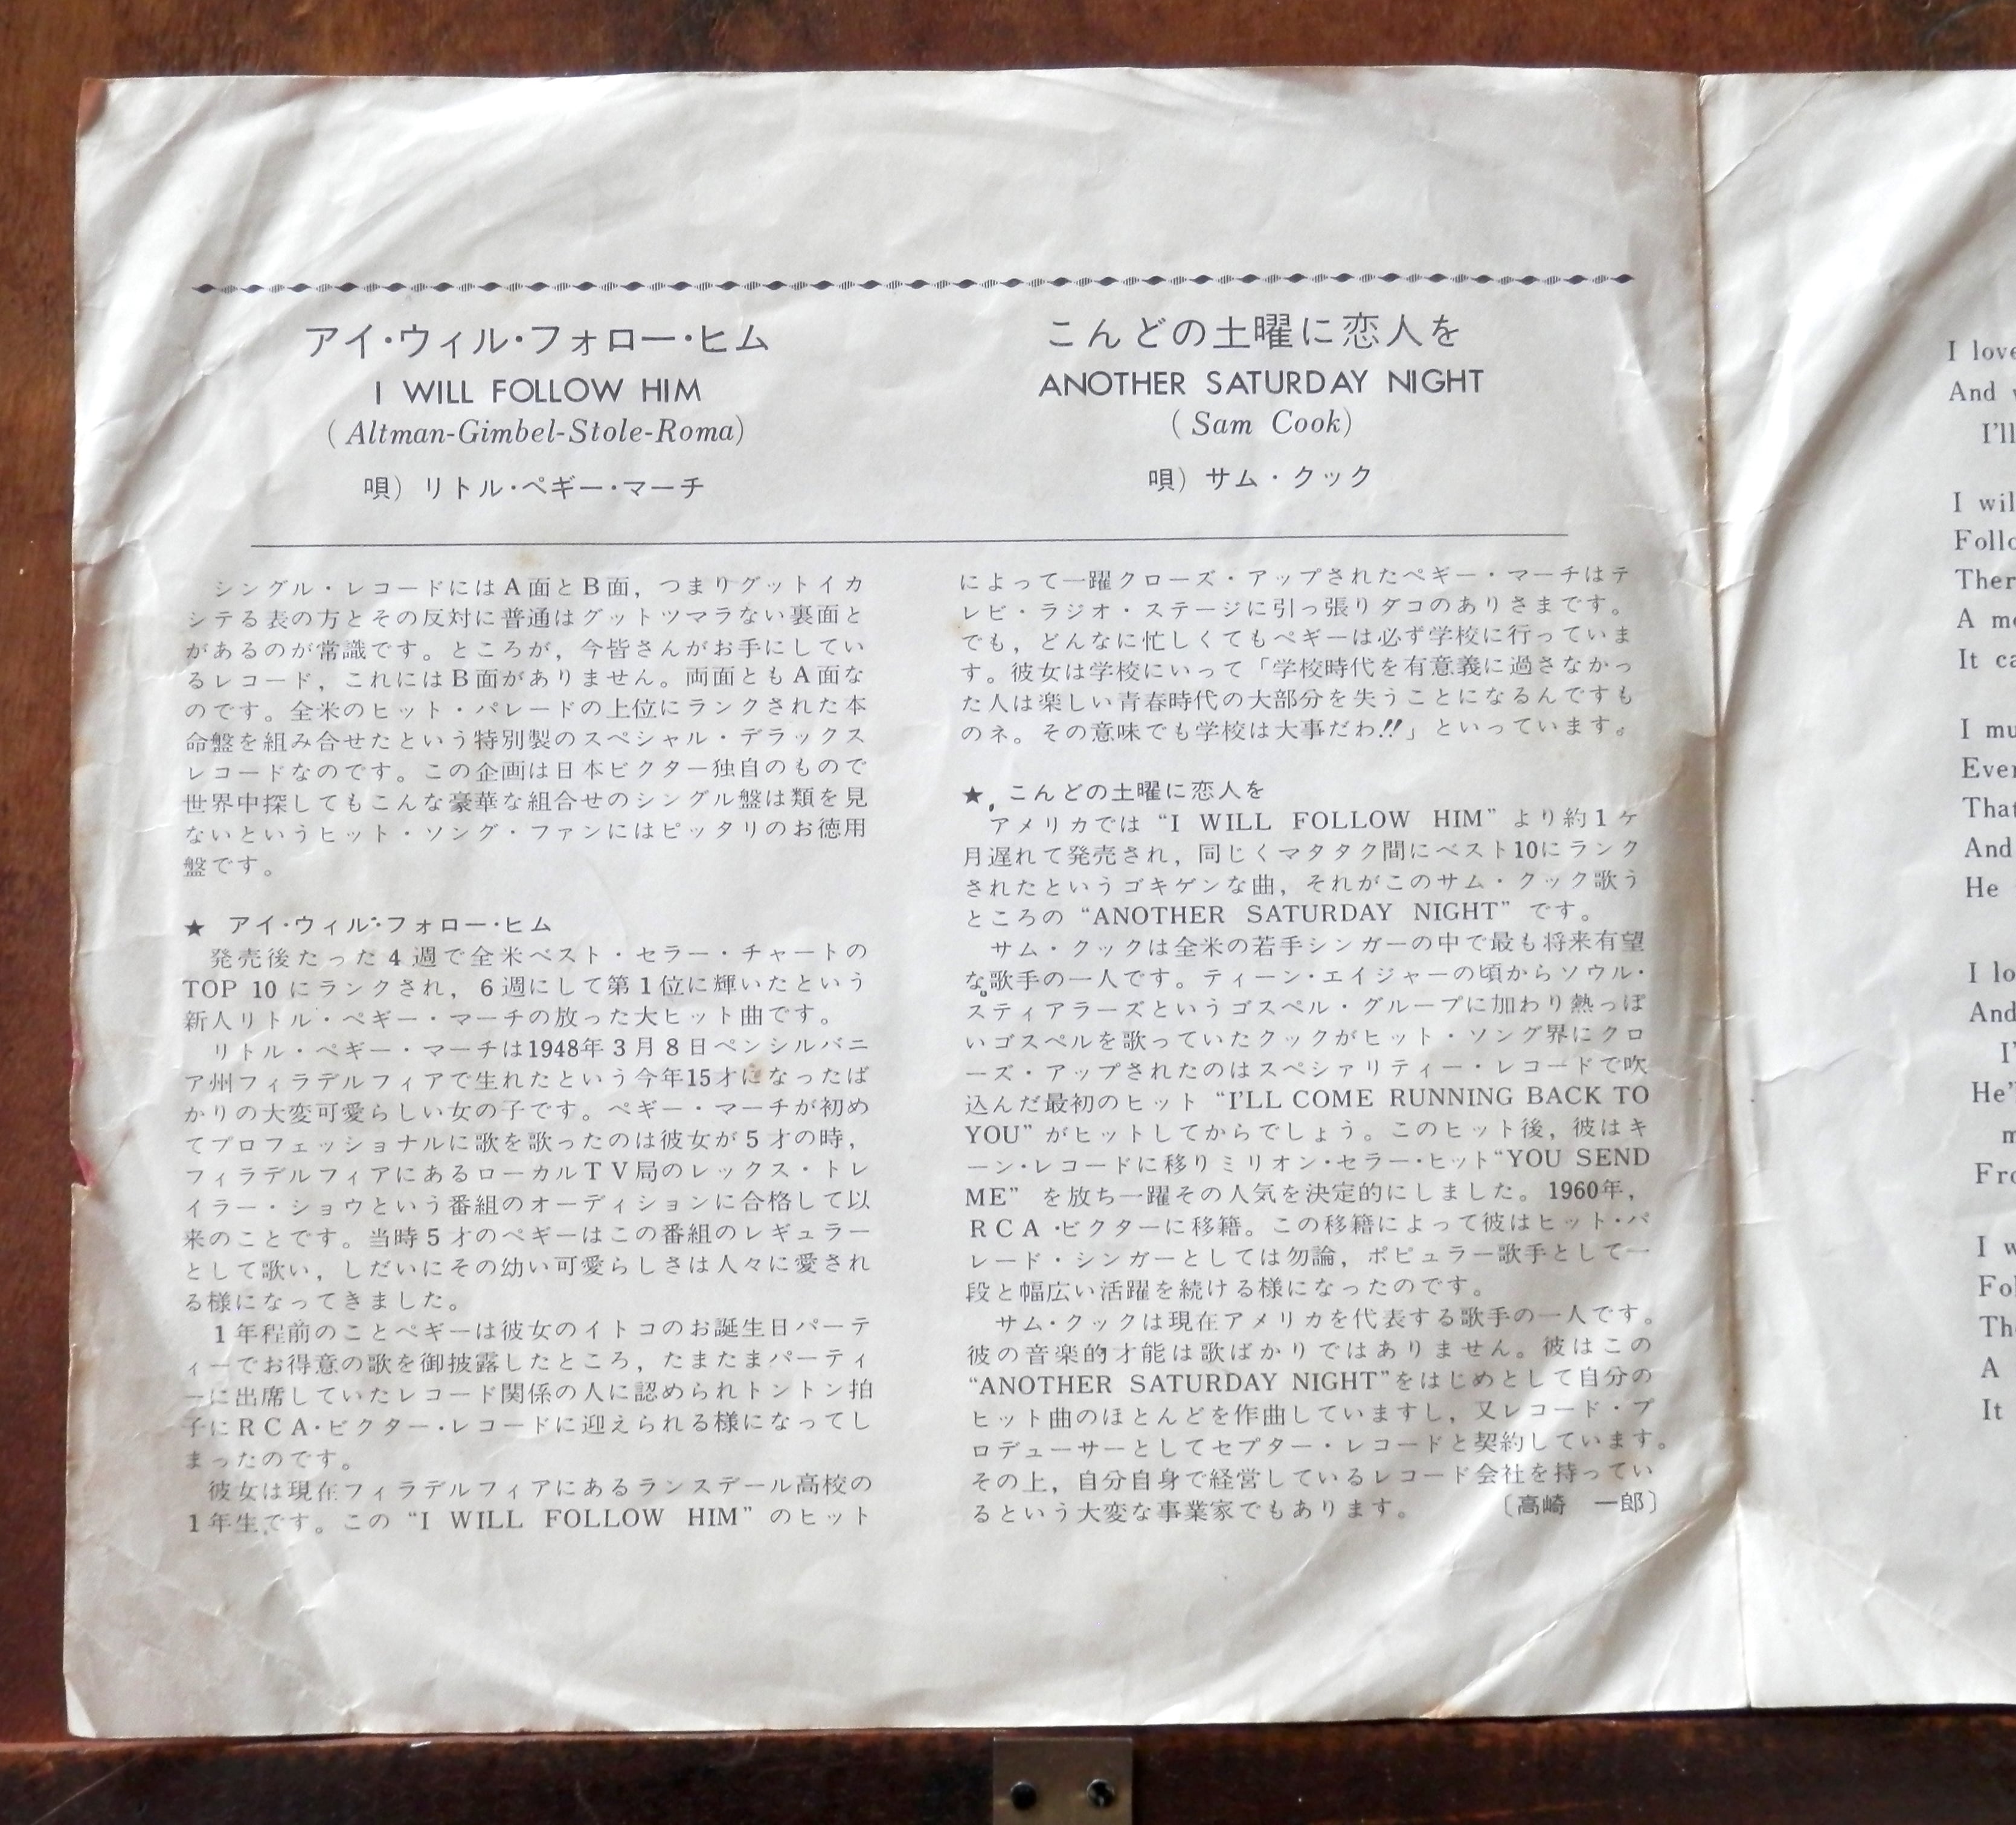 アイ・ウィル・フォロー・ヒム
I WILL FOLLOW HIM
(Altman-Gimbel-Stole-Roma)
唄) リトル・ペギー・マーチ
こんどの土曜に恋人を
ANOTHER SATURDAY NIGHT
(Sam Cook)
唄) サム・クック
シングル・レコードにはA面とB面，つまりグットイカ
シテる表の方とその反対に普通はグットツマラない裏面と
があるのが常識です。ところが，今皆さんがお手にしてい
るレコード，これにはB面がありません。両面ともA面な
のです。全米のヒット・パレードの上位にランクされた本
命盤を組み合せたという特別製のスペシャル・デラックス
レコードなのです。この企画は日本ビクター独自のもので
世界中探してもこんな豪華な組合せのシングル盤は類を見
ないというヒット・ソング・ファンにはピッタリのお徳用
盤です。
★ アイ・ウィル・フォロー・ヒム
発売後たった4週で全米ベスト・セラー・チャートの
TOP 10 にランクされ，6週にして第1位に輝いたという
新人リトル・ペギー・マーチの放った大ヒット曲です。
リトル・ペギー・マーチは1948年3月8日ペンシルバニ
ア州フィラデルフィアで生れたという今年15才になったば
かりの大変可愛らしい女の子です。ペギー・マーチが初め
てプロフェッショナルに歌を歌ったのは彼女が5才の時，
フィラデルフィアにあるローカルTV局のレックス・トレ
イラー・ショウという番組のオーディションに合格して以
来のことです。当時5才のペギーはこの番組のレギュラー
として歌い，しだいにその幼い可愛らしさは人々に愛され
る様になってきました。
1年程前のことペギーは彼女のイトコのお誕生日パーテ
ィーでお得意の歌を御披露したところ，たまたまパーティ
ーに出席していたレコード関係の人に認められトントン拍
子にRCA・ビクター・レコードに迎えられる様になってし
まったのです。
彼女は現在フィラデルフィアにあるランスデール高校の
1年生です。この “I WILL FOLLOW HIM” のヒット
によって一躍クローズ・アップされたペギー・マーチはテ
レビ・ラジオ・ステージに引っ張りダコのありさまです。
でも，どんなに忙しくてもペギーは必ず学校に行っていま
す。彼女は学校にいって「学校時代を有意義に過さなかっ
た人は楽しい青春時代の大部分を失うことになるんですも
のネ。その意味でも学校は大事だわ!!」といっています。
★ こんどの土曜に恋人を
アメリカでは “I WILL FOLLOW HIM” より約1ヶ
月遅れて発売され，同じくマタタク間にベスト10にランク
されたというゴキゲンな曲，それがこのサム・クック歌う
ところの “ANOTHER SATURDAY NIGHT” です。
サム・クックは全米の若手シンガーの中で最も将来有望
な歌手の一人です。ティーン・エイジャーの頃からソウル・
スティアラーズというゴスペル・グループに加わり熱っぽ
いゴスペルを歌っていたクックがヒット・ソング界にクロ
ーズ・アップされたのはスペシァリティー・レコードで吹
込んだ最初のヒット “I'LL COME RUNNING BACK TO
YOU” がヒットしてからでしょう。このヒット後，彼はキ
ーン・レコードに移りミリオン・セラー・ヒット“YOU SEND
ME” を放ち一躍その人気を決定的にしました。1960年，
RCA・ビクターに移籍。この移籍によって彼はヒット・パ
レード・シンガーとしては勿論，ポピュラー歌手として一
段と幅広い活躍を続ける様になったのです。
サム・クックは現在アメリカを代表する歌手の一人です。
彼の音楽的才能は歌ばかりではありません。彼はこの
“ANOTHER SATURDAY NIGHT”をはじめとして自分の
ヒット曲のほとんどを作曲していますし，又レコード・プ
ロデューサーとしてセプター・レコードと契約しています。
その上，自分自身で経営しているレコード会社を持ってい
るという大変な事業家でもあります。 〔高崎 一郎〕
I love
And
I'll
I
Ther
A
It
I
Ever
That
And
He
I
And
He'
I
A
It